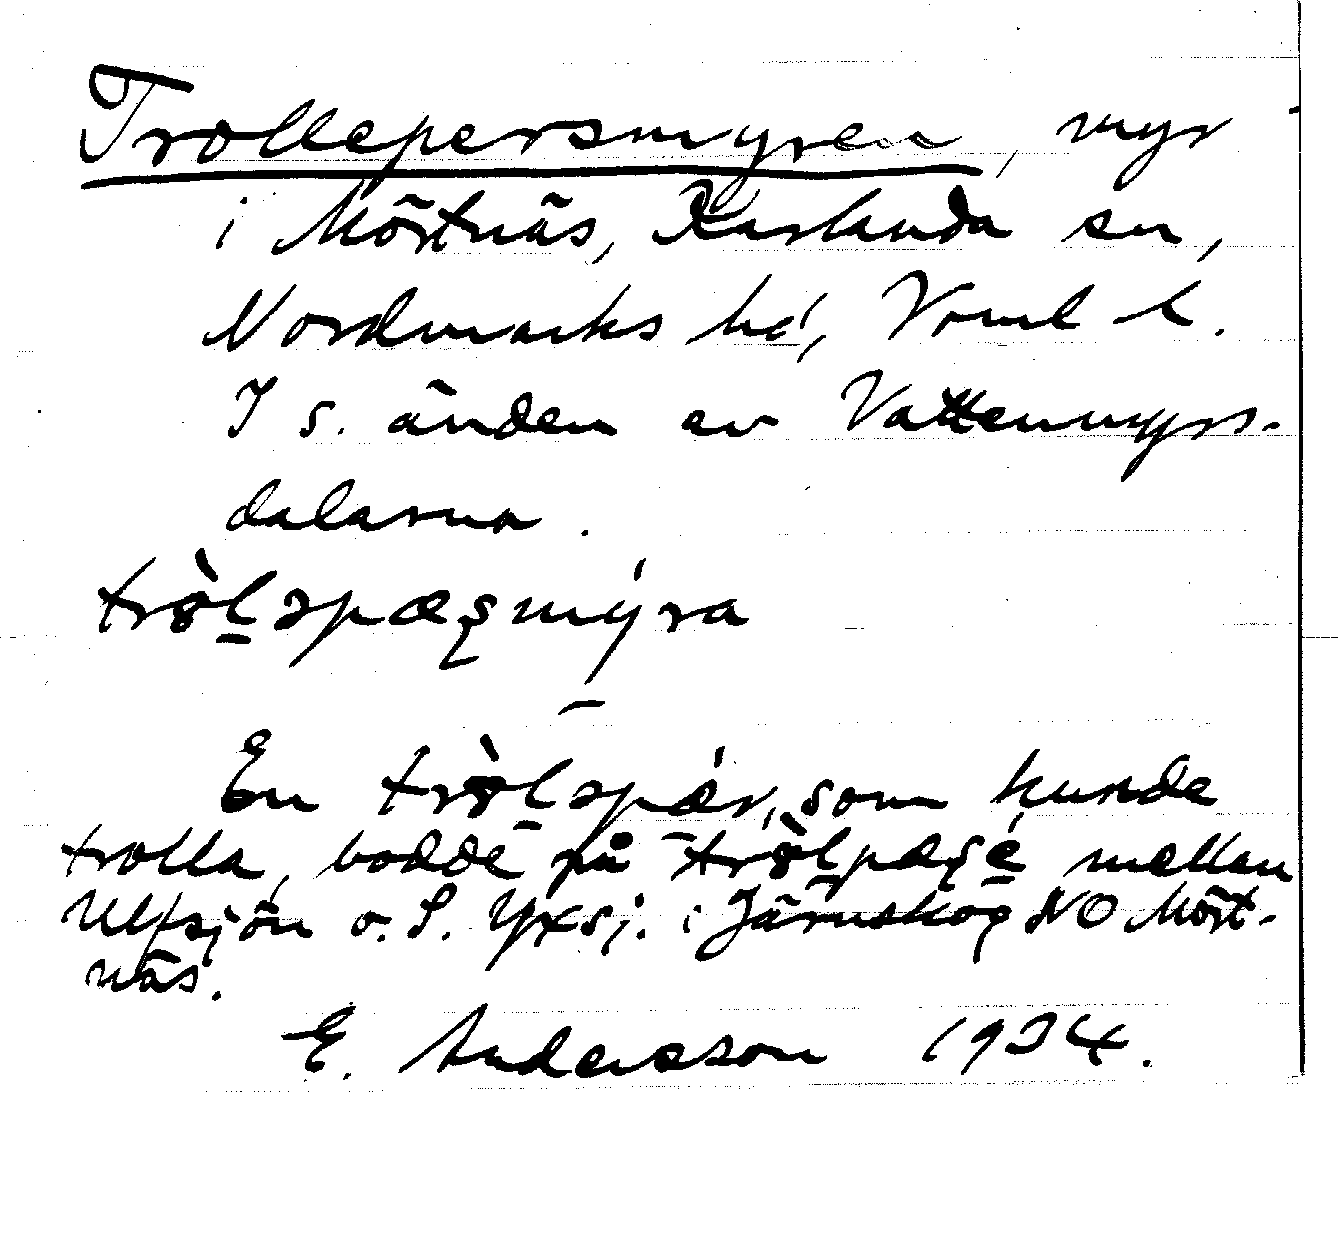 Trollepersmyren, myr
i Mörtnäs, Karlanda sn,
Nordmarks hd, Vrml l.
I s. änden av Vattenmyrs-
dalarna.
trò̤l̲əpæʂmýra
En trò̤l̲əpǽr, som kunde
trolla, bodde på trò̤l̲pæʂé̲ mellan
Ulfsjön o. S. Yxsj. i Järnskog NO Mört-
näs.
E. Andersson 1934.